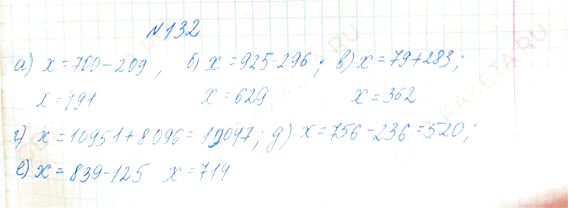 №132
а) x = 700-209, б) x = 925-296; в) x = 79+283;
x = 491 x = 629 x = 362
г) x = 10951+8096 = 19047; д) x = 756-236 = 520;
е) x = 839-125 x = 714